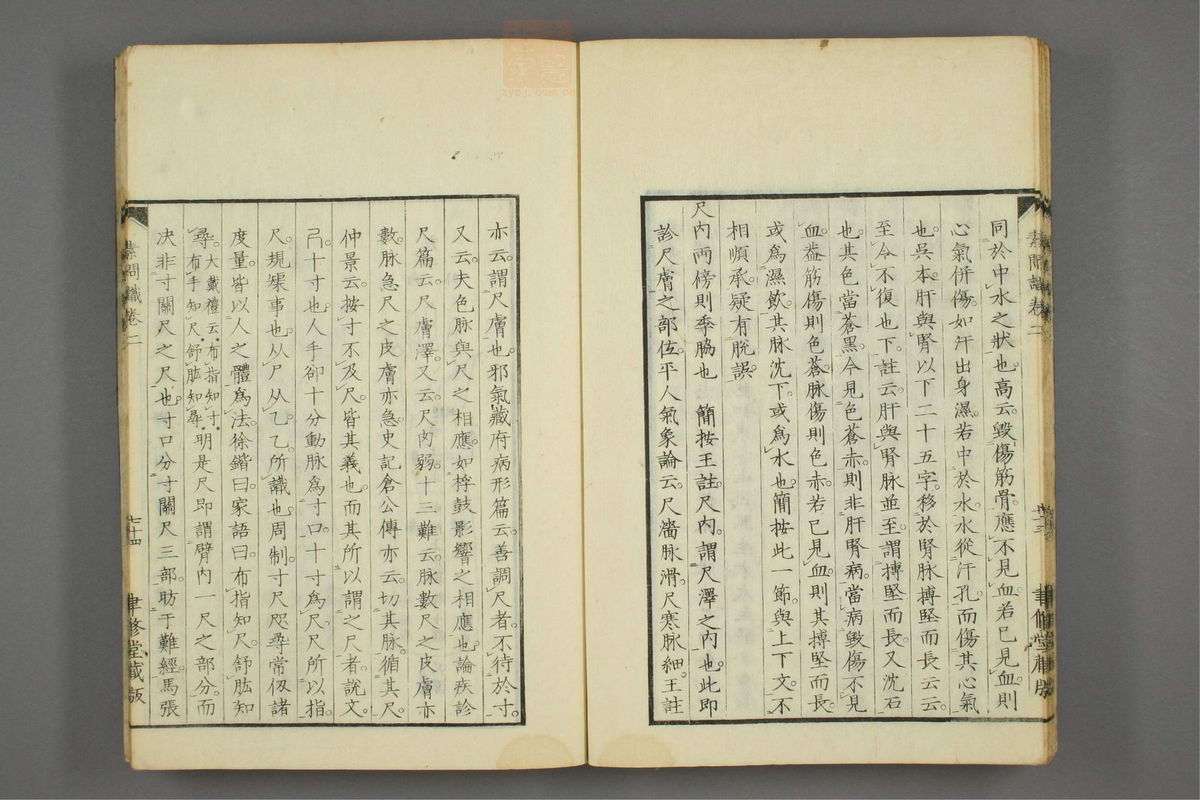 同於中水之狀也。高云。毀傷筋骨。應不見血。若已見血。則
心氣併傷。如汗出身濕。若中於水。水從汗孔而傷其心氣
也。吳本。肝與腎以下二十五字。移於腎脈搏堅而長云云
至今不復也。下註云。肝與腎脈並至。謂搏堅而長。又沈石
也。其色當蒼黑。今見色蒼赤。則非肝腎病。當病毀傷不見
血。蓋筋傷則色蒼。脈傷則色赤。若已見血。則其搏堅而長。
或為濕飲。其脈沈下。或為水也。簡按此一節。與上下文。不
相順承。疑有脫誤。
尺內兩傍則季脇也 簡按王註。尺內。謂尺澤之內也。此即
診尺膚之部位。平人氣象論云。尺濇脈滑。尺寒脈細。王註
素問識卷二
聿修堂藏版
亦云。謂尺膚也。邪氣藏府病形篇云。善調尺者。不待於寸。
又云。夫色脈與尺之相應。如桴鼓影響之相應也。論疾診
尺篇云。尺膚澤。又云。尺肉弱。十三難云。脈數尺之皮膚亦
數。脈急尺之皮膚亦急。史記倉公傳亦云。切其脈。循其尺。
仲景云。按寸不及尺。皆其義也。而其所以謂之尺者。說文。
尺。十寸也。人手卻十分動脈為寸口。十寸為尺。尺所以指
尺。規榘事也。从尸从乙。乙。所識也。周制。寸尺咫尋常仞諸
度量。皆以人之體為法。徐鍇曰。家語曰。布指知尺。舒肱知
尋。大戴禮云。布指知寸。布手知尺。舒肱知尋。明是尺即謂臂內一尺之部分。而
決非寸關尺之尺也。寸口分寸關尺三部。昉于難經。馬張
素問識卷二
七十四
聿修堂藏版